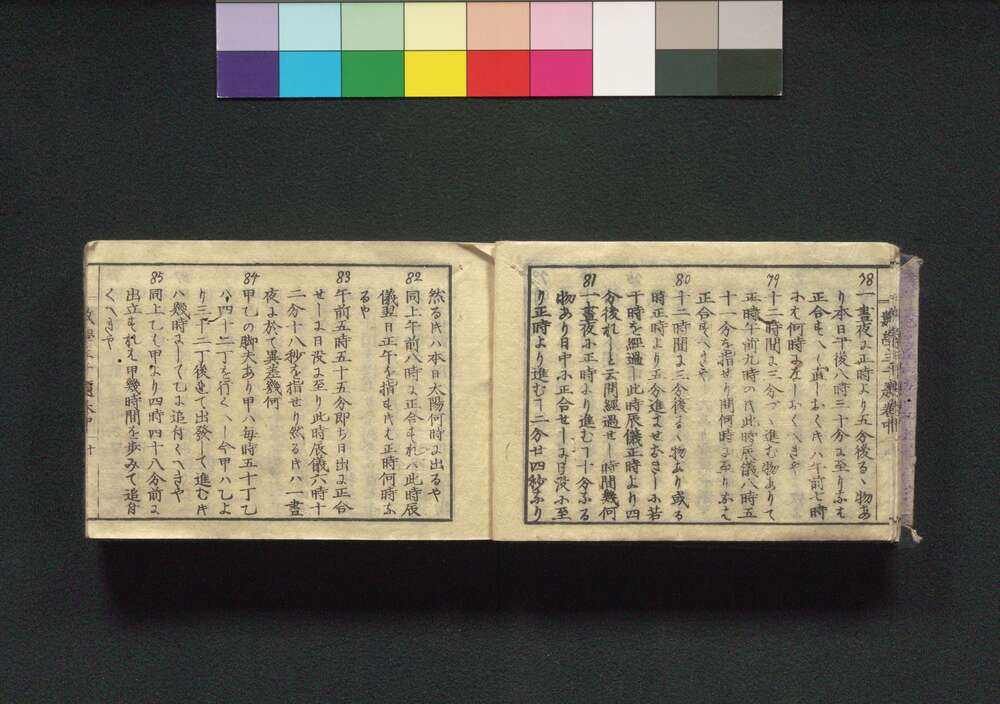 78
一晝夜に正時より五分後るゝ物あ
り本日午後八時三十分に至りふも
正合もへく直しおくヰハ午前七時
ふも何時に差しおくへきや
79
十二時間に三分づゝ進む物ありて
正時午前九時のヰ此時辰儀八時五
十一分を指せり問何時に至りふえ
正合もへきや
80
十二時間に三分後るゝ物あり或る
時正時より五分進ませおきしふ若
干時を經過し此時辰儀正時より四
分後れしと云問經過せし時間幾何
81
一晝夜ふ正時より進む丁十分ふる
物あり日中ふ正合せしに日没ふ至
り正時より進む丁二分廿四秒ふり
然るヰハ本日太陽何時に出るや
82
同上午前八時に正合もれハ此時辰
儀翌日正午を指もヰも正時何時ふ
るや
83
午前五時五十五分即ち日出に正合
せしに日没に至り此時辰儀六時十
二分十八秒を指せり然るヰハ一晝
夜に於て異差幾何
84
甲乙の脚夫あり甲ハ毎時五十丁乙
ハ四十二丁を行くへし今甲ハ乙よ
り三十二丁後れて出發して進むヰ
ハ幾時にして乙に追付くへきや
85
同上乙く甲より四時四十八分前に
出立もれえ甲幾時間を歩みて追付
くへきや